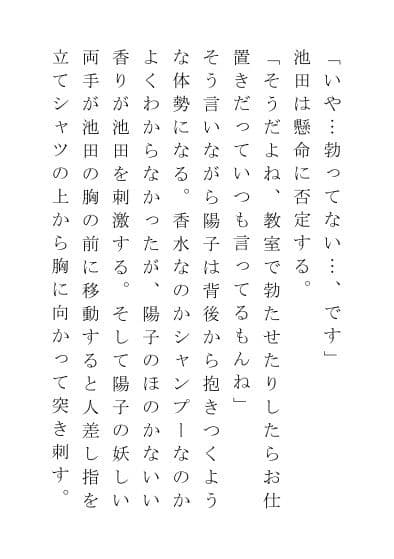 「いや…勃ってない…、です」
池田は懸命に否定する。
「そうだよね、教室で勃たせたりしたらお仕
置きだっていつも言ってるもんね」
そう言いながら陽子は背後から抱きつくよう
な体勢になる。香水なのかシャンプーなのか
よくわからなかったが、陽子のほのかないい
香りが池田を刺激する。そして陽子の妖しい
両手が池田の胸の前に移動すると人差し指を
立てシャツの上から胸に向かって突き刺す。